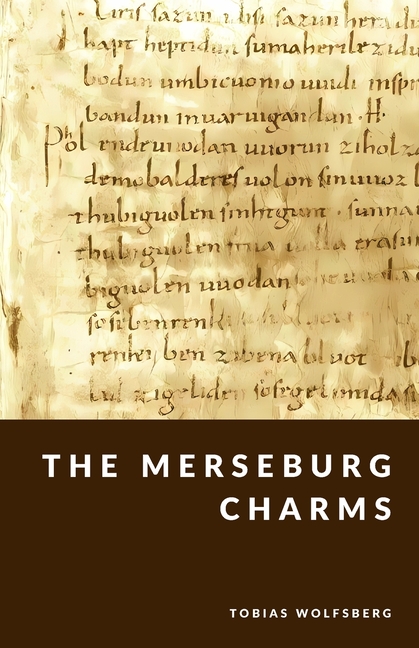 Eiris sazun idisi sazun heradu
hapt heptidun sumaherilezidu
bodun umbicuonio uuidi inspr
bandun inuaruigandun ·H·
Phol endeuuodan uuorun ziholza
demobalderes uolon sinuuoz
thubiguolen sinhtgunt · sunna
thubiguolen uolla erasu
biguolen uuodan
sosebenrenki
ben zibena bluot
lid zigeliden sosegelimida
THE MERSEBURG
CHARMS
TOBIAS WOLFSBERG